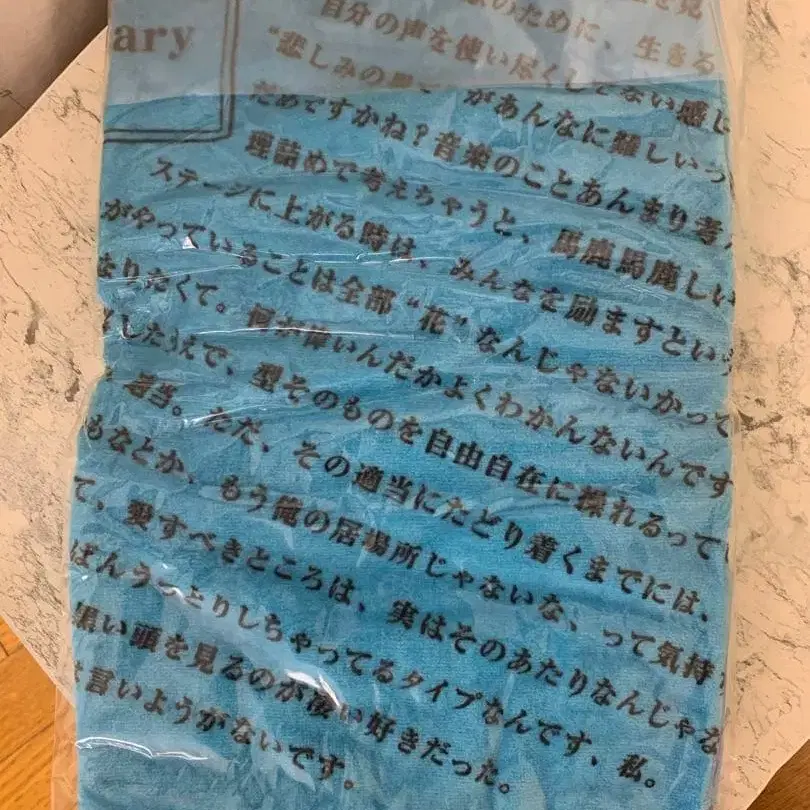 ary
を見
のために、生きる
自分の声を使い尽くしてない感じ
“悲しみの果て があんなに嬉しいっ
だめですかね?音楽のことあんまり考え
理詰めで考えちゃうと、馬鹿馬鹿しい
ステージに上がる時は、みんなを励ますという
がやっていることは全部“花”なんじゃないかって
なりたくて。何が偉いんだかよくわかんないんです
したうえで、型そのものを自由自在に操れるってい
適当。ただ、その適当にたどり着くまでには、
もなとか、もう俺の居場所じゃないな、って気持
て、愛すべきところは、実はそのあたりなんじゃな
ばんうっとりしちゃってるタイプなんです、私。
黒い頭を見るのが凄い好きだった。
言いようがないです。